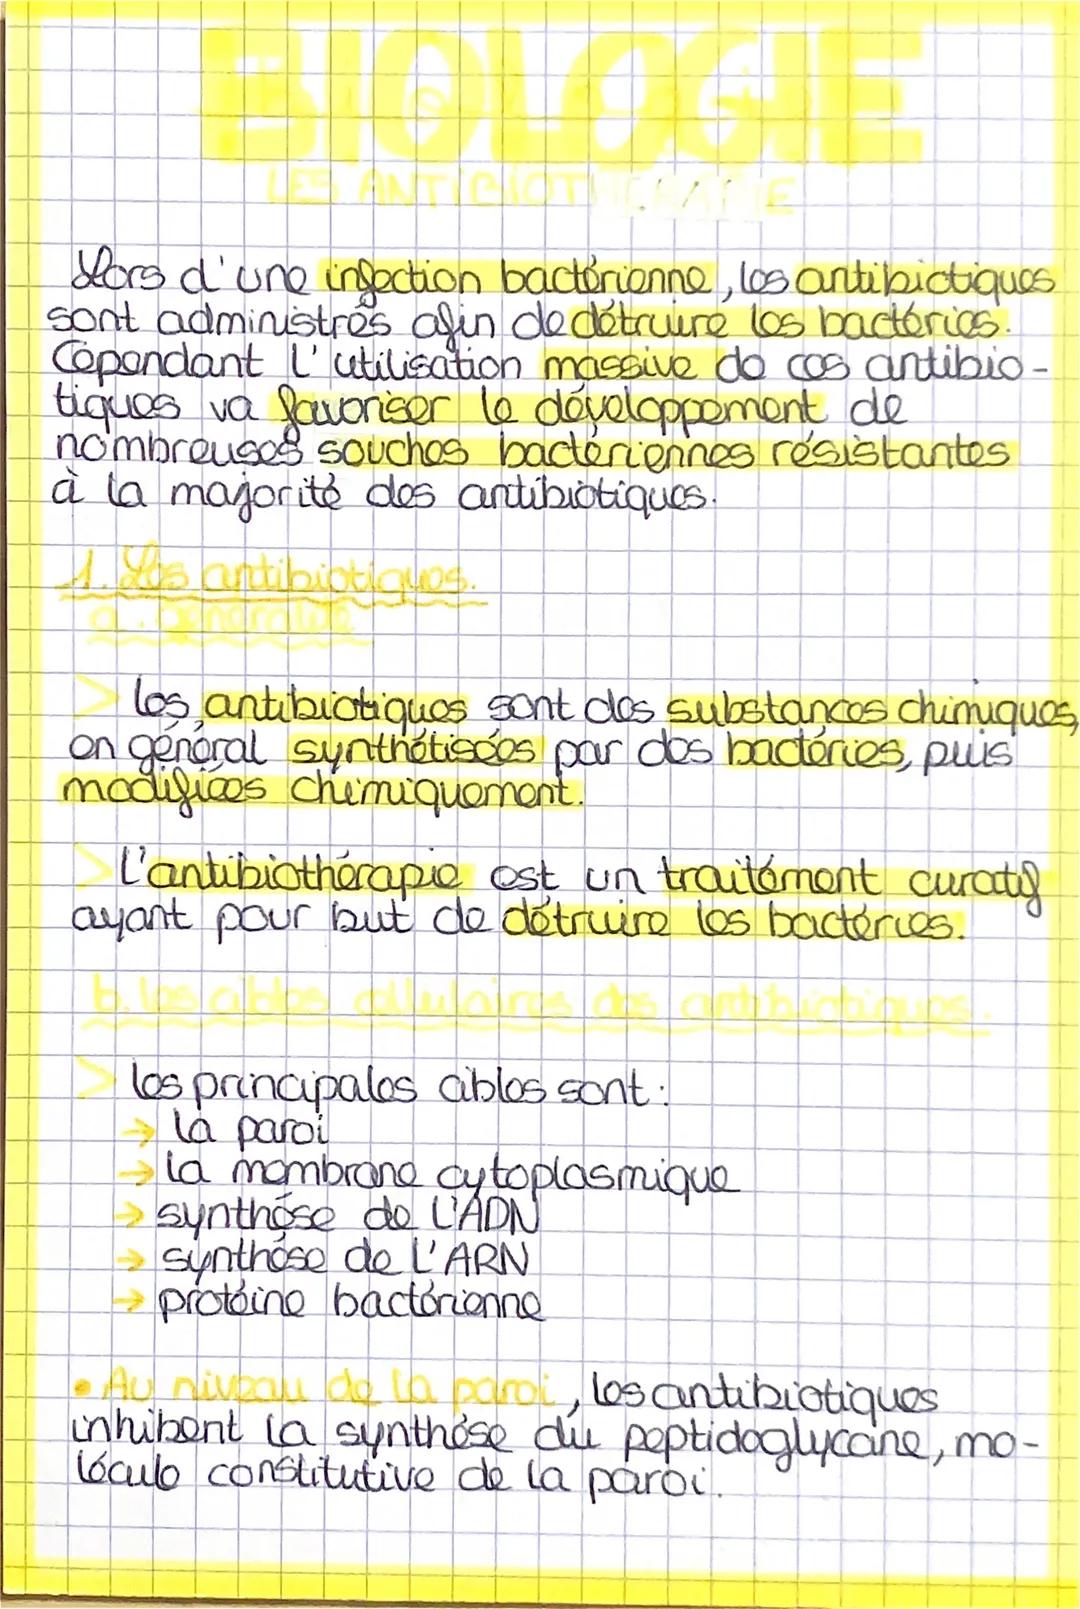 BIOLOGIE
LES ANTIBIOTHERAPIE
Lors d'une infection bactérienne, les antibiotiques
sont administrés afin de détruire les bactéries.
Cependant l'utilisation massive de ces antibio-
tiques va favoriser le développement de
nombreuses souches bactériennes résistantes
à la majorité des antibiotiques.
1. Les antibiotiques.
a. Généralité
> les antibiotiques sont des substances chimiques,
en général synthétisées par des bactéries, puis
modifiées chimiquement.
> L'antibiothérapie est un traitement curatif
ayant pour but de détruire les bactéries.
b. les cibles cellulaires des antibiotiques.
> les principales cibles sont :
→ la paroi
→ la membrane cytoplasmique
→ synthèse de l'ADN
→ synthèse de l'ARN
→ protéine bactérienne
• Au niveau de la paroi, les antibiotiques
inhibent la synthèse du peptidoglycane, mo-
lécule constitutive de la paroi.